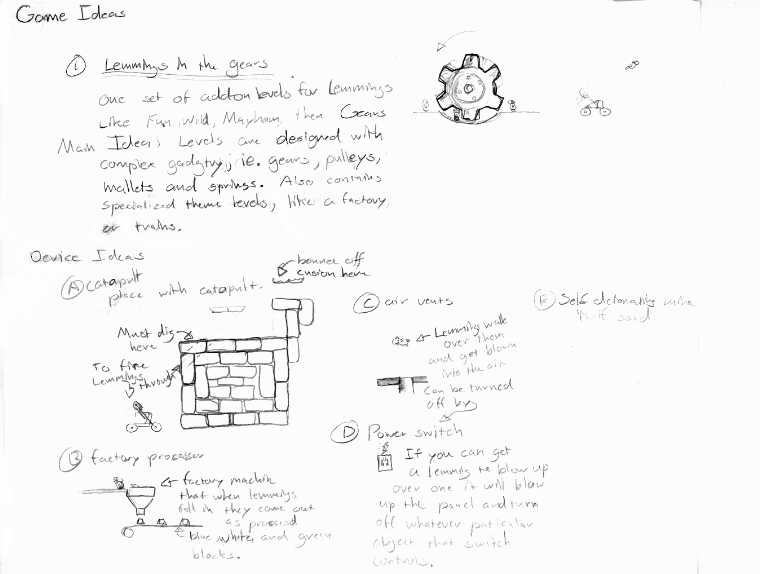 Game Ideas
① Lemmings In the gears
One set of addon levels for Lemmings
Like Fun, Wild, Mayham, then Gears
Main Idea: Levels are designed with
complex gadgtry; ie. gears, pulleys,
mallets and springs. Also contains
specialized theme levels, like a factory
or trains.
Device Ideas
Ⓐ catapult
place with catapult.
bounce off
cusion here
Must dig
here
To fire
Lemmings
through
Ⓑ factory processer
factory machin
that when lemmings
fall in they come out
as processd
blue, white, and green
blocks.
Ⓒ air vents
Lemming walk
over them
and get blown
into the air
can be turned
off by
Ⓓ Power switch
If you can get
a lemming to blow up
over one it will blow
up the panel and turn
off whatever paticular
object that switch
controls.
Ⓔ Self detonating mine